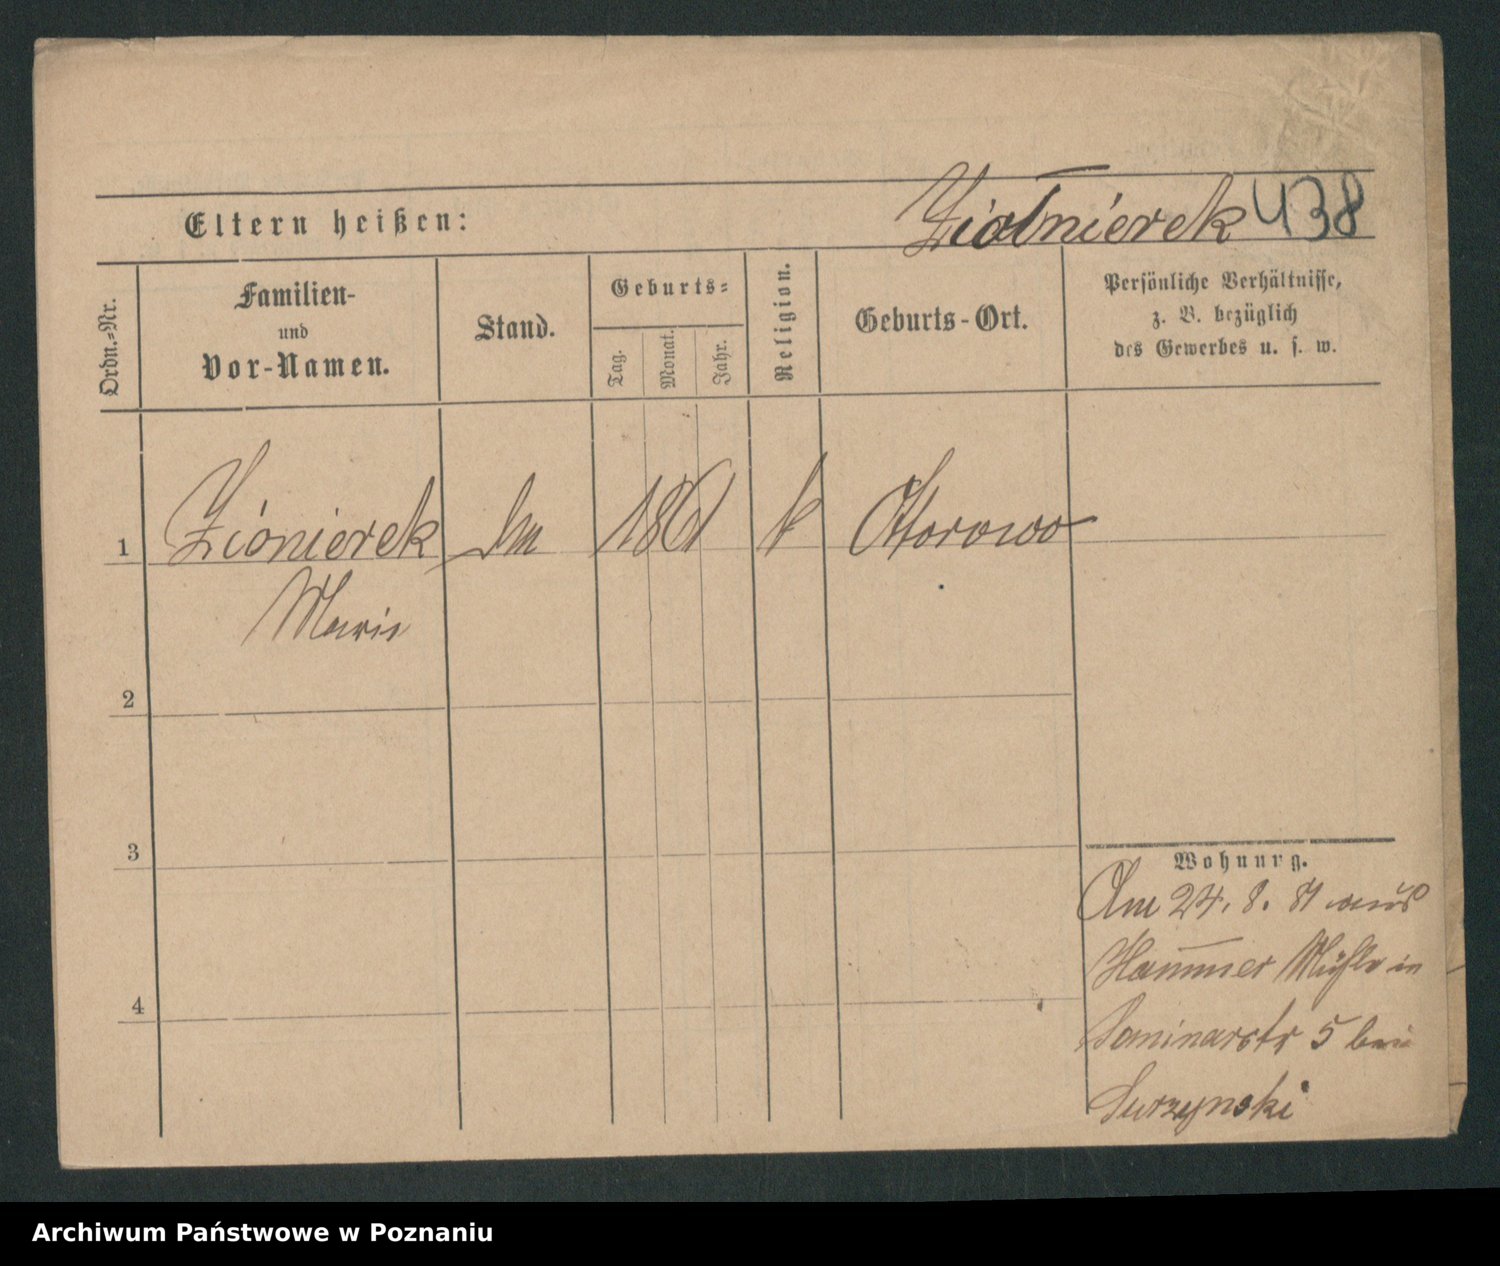 Ziołnierek 438
Eltern heißen:
Ordn.-Nr.
Familien-
und
Vor-Namen.
Stand.
Geburts-
Tag.
Monat.
Jahr.
Religion.
Geburts-Ort.
Persönliche Verhältnisse,
z. B. bezüglich
des Gewerbes u. s. w.
1 Ziónierek 1861 k Otorowo
Marie
2
3
4
Wohnung.
Am 24. 8. 81 aus
Hammer Mühle in
Seminarstr 5 bei
Surzynski
Archiwum Państwowe w Poznaniu